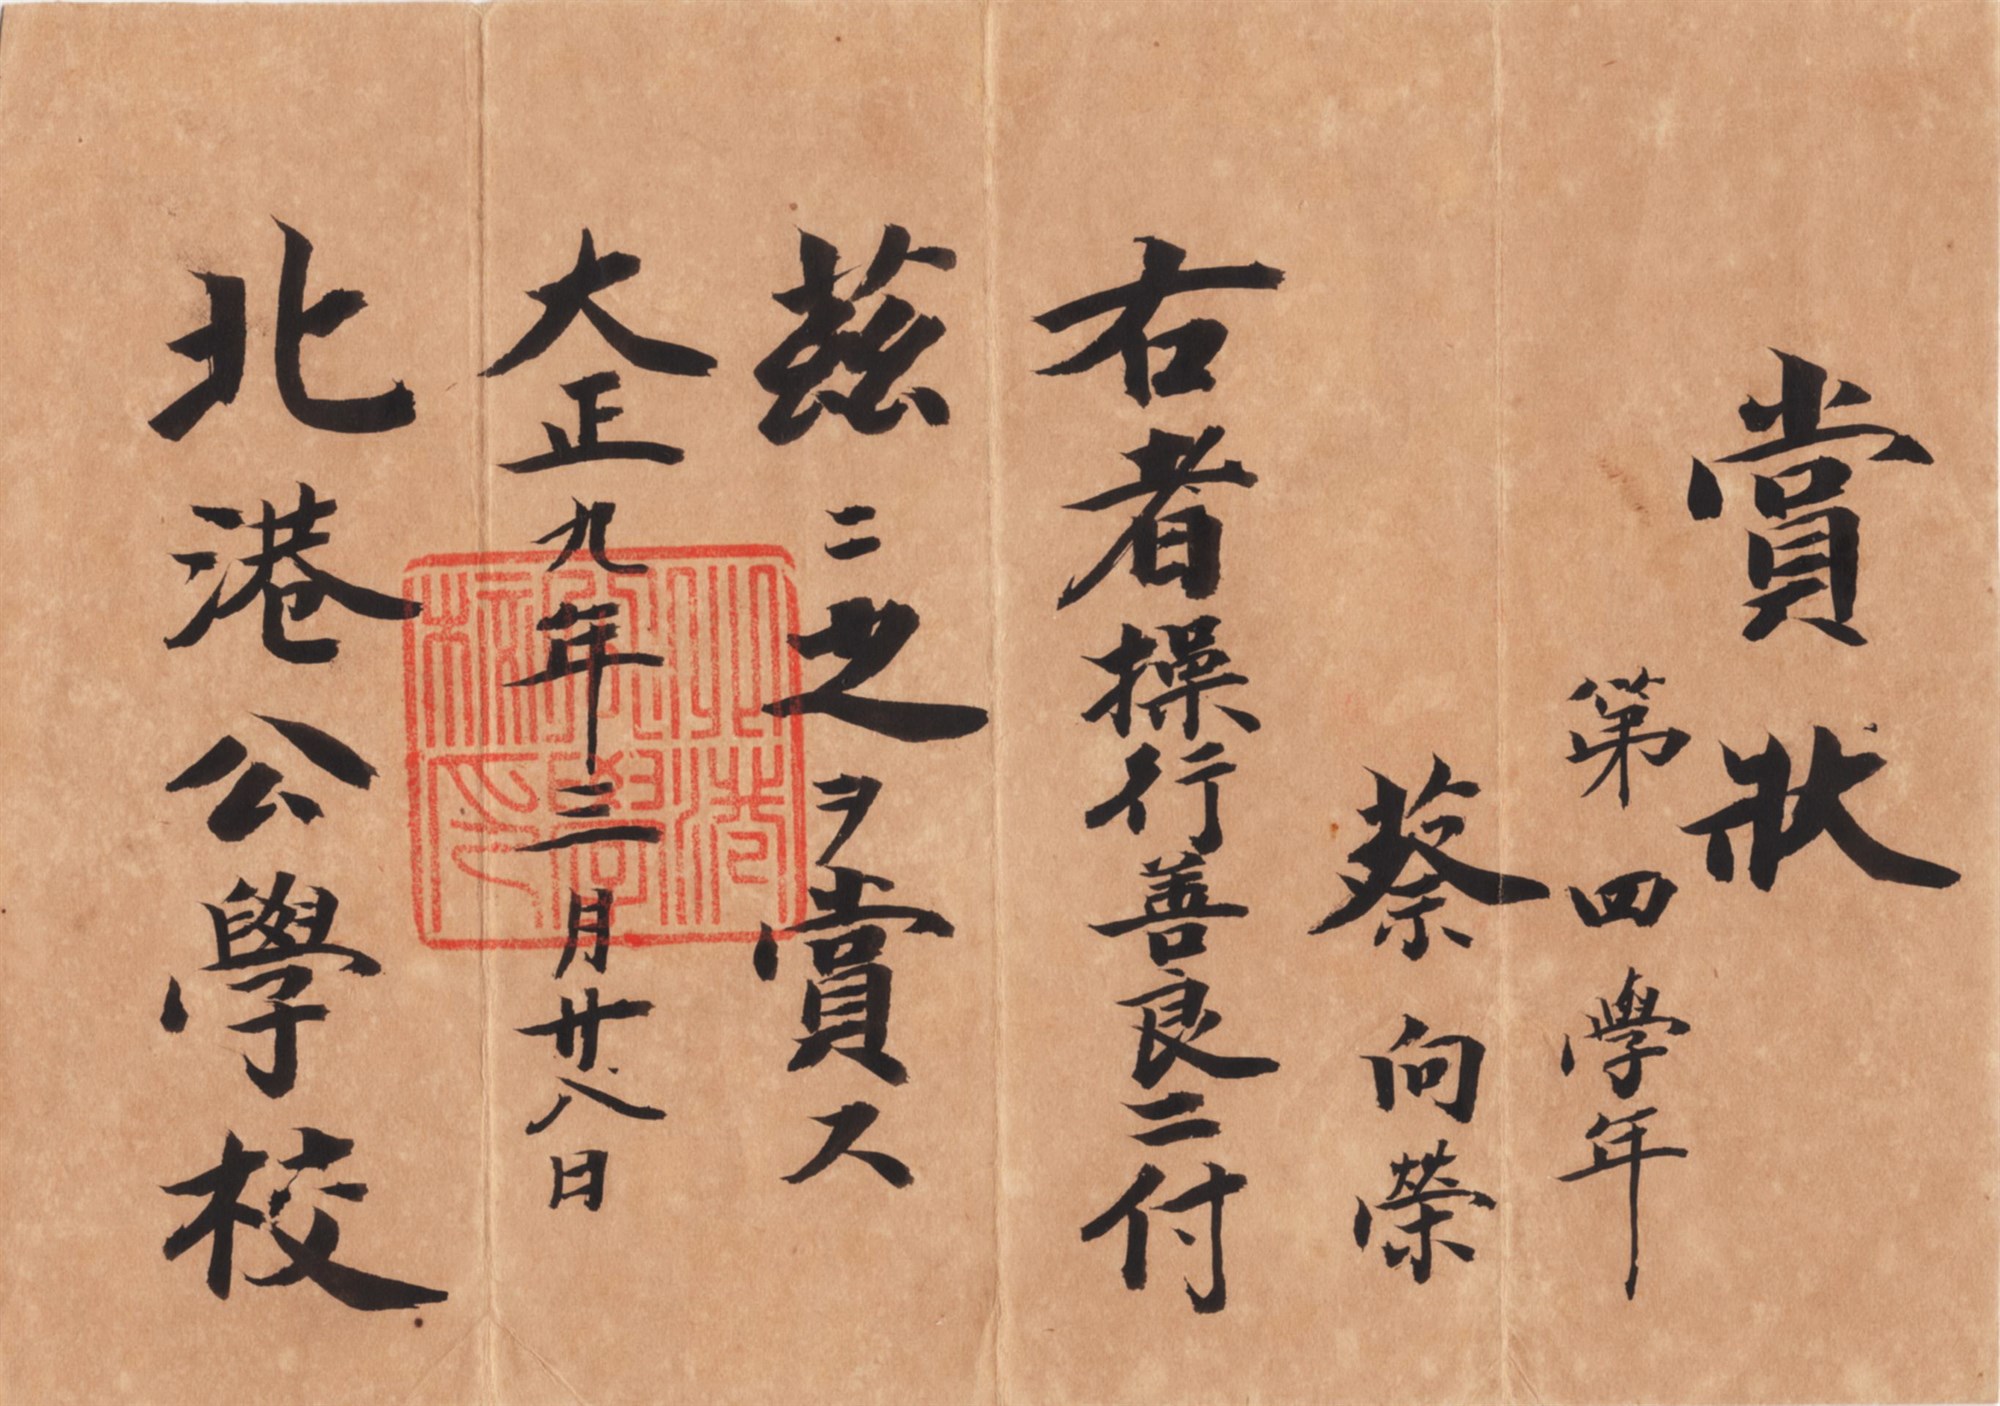 賞狀
第四學年
蔡向榮
右者操行善良ニ付
茲ニ之ヲ賞ス
大正九年三月廿八日
北港公學校
北港
公學
校印